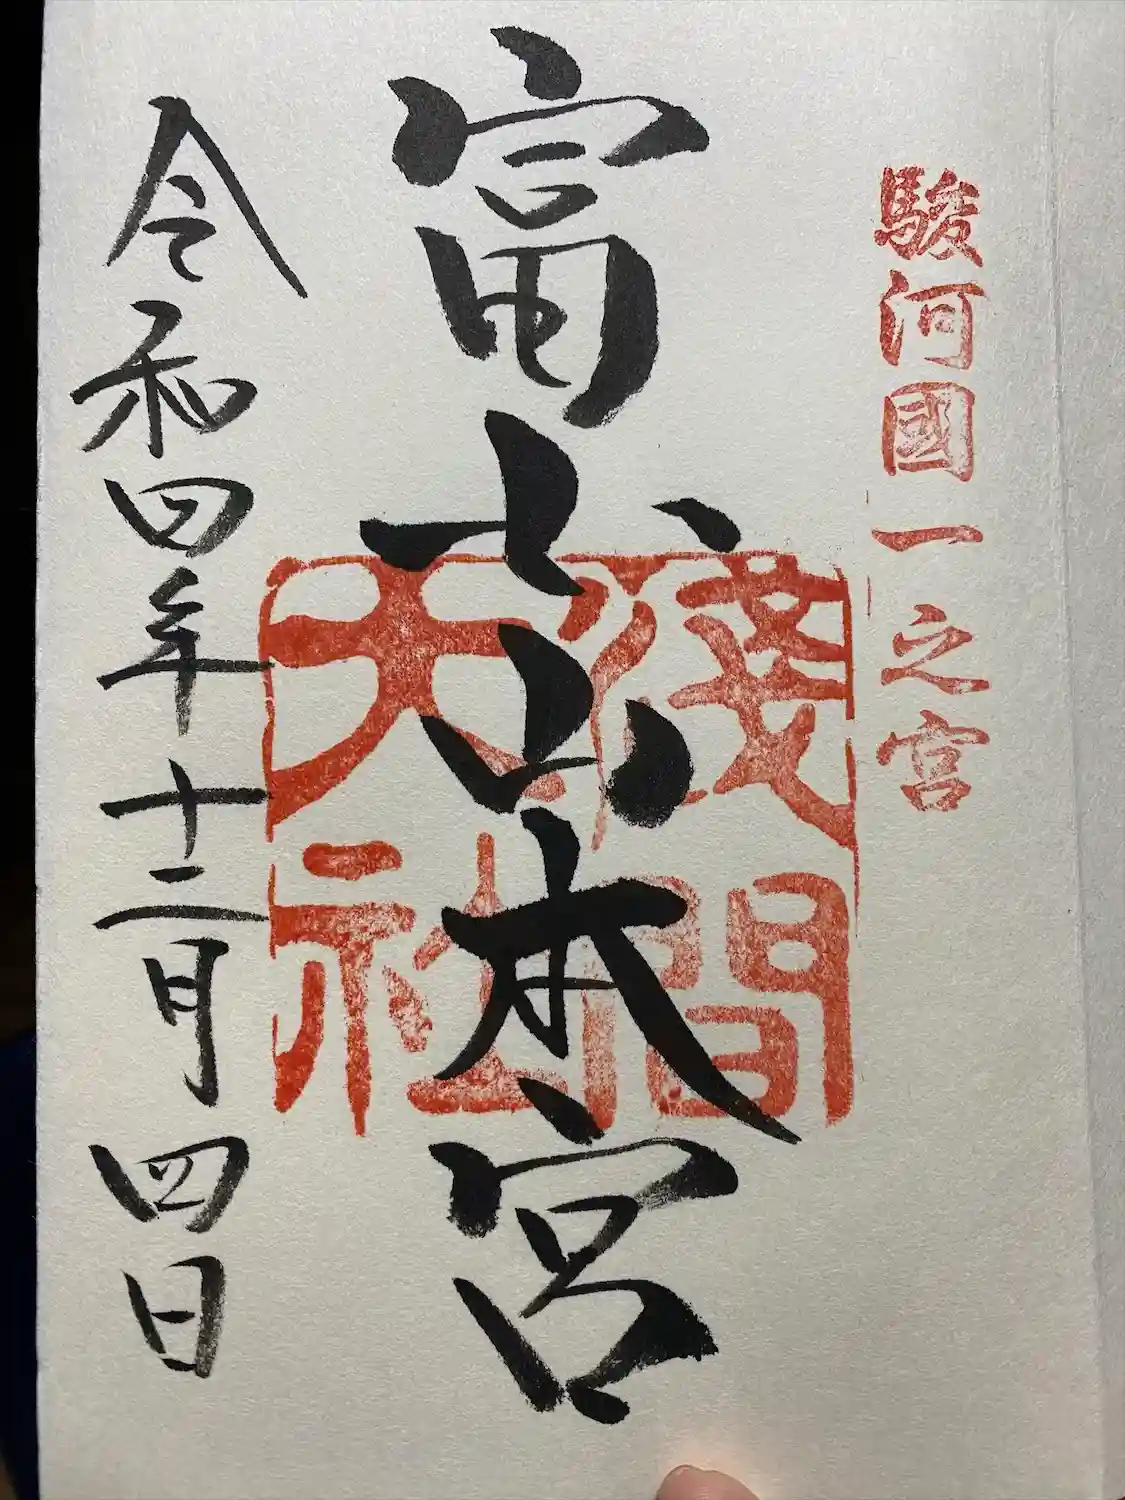 駿河國一之宮
富士山本宮
淺間大社
令和四年十二月四日